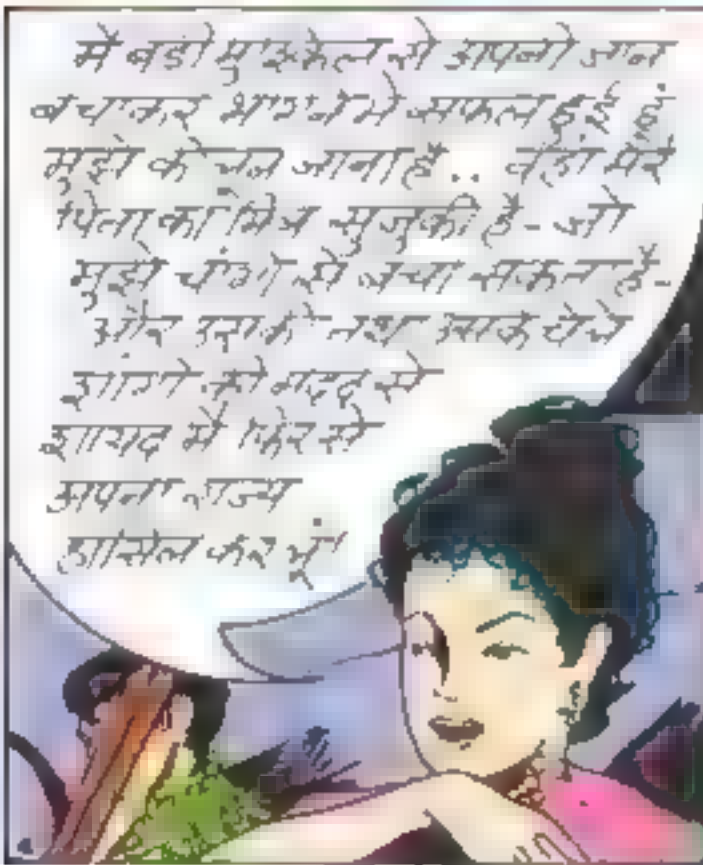 मैं बड़ी मुश्किल से अपनी जान
बचाकर भागने में सफल हुई हूं
मुझे जाना है.. वहां मेरे
पिता का मित्र सुजुकी है- जो
मुझे चांगो से बचा सकता है-
और उसकी तथा उसके चेले
शांगो की मदद से
शायद मैं फिर से
अपना राज्य
हासिल कर लूं